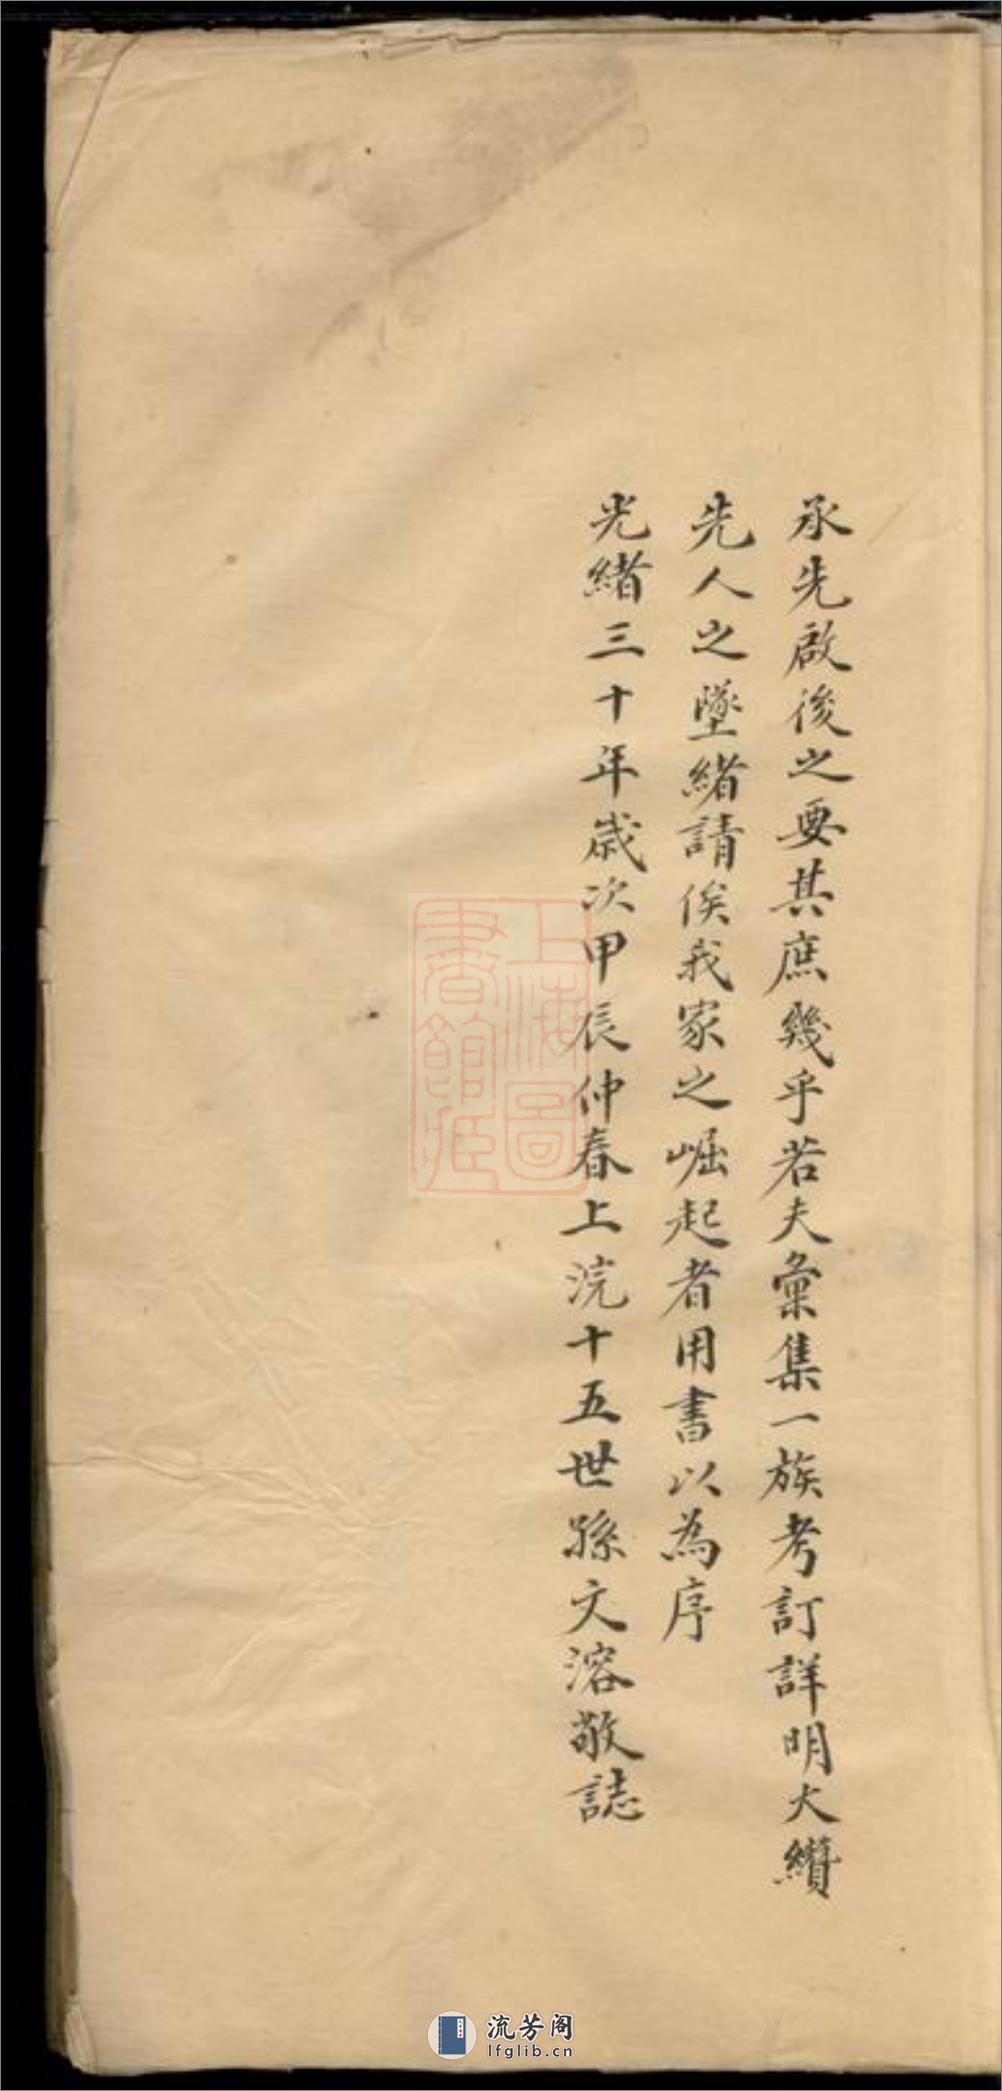 承先啟後之要其庶幾乎若夫彙集一族考訂詳明大纘
先人之墜緒請俟我家之崛起者用書以為序
光緒三十年歲次甲辰仲春上浣十五世孫文溶敬誌
上海圖書館藏
流芳阁
lfglib.cn